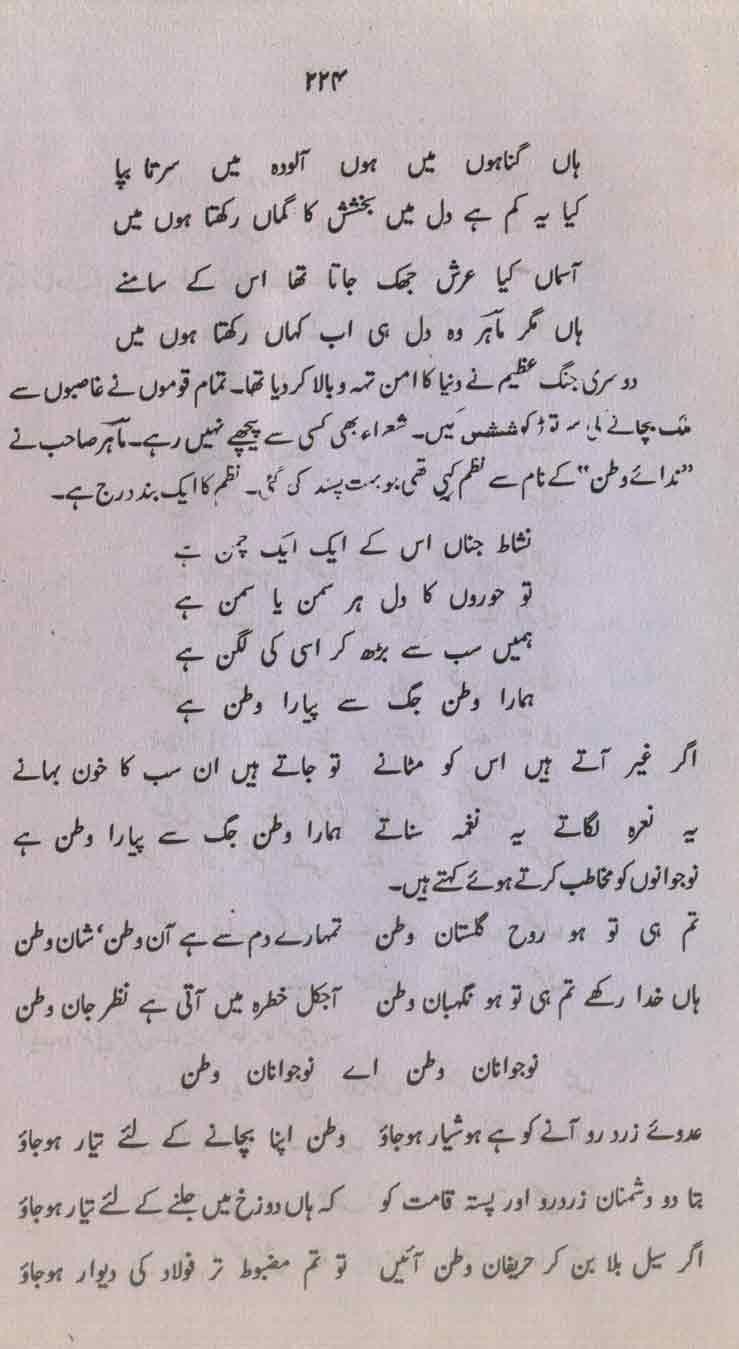 ۲۲۴
ہاں گناہوں میں ہوں آلودہ میں سرتا بپا
کیا یہ کم ہے دل میں بخشش کا گماں رکھتا ہوں میں
آسماں کیا عرش جھک جاتا تھا اس کے سامنے
ہاں مگر ماہر وہ دل ہی اب کہاں رکھتا ہوں میں
دوسری جنگ عظیم نے دنیا کا امن تہہ و بالا کر دیا تھا۔ تمام قوموں نے غاصبوں سے
ملک بچانے کی کوششیں کیں۔ شعراء بھی کسی سے پیچھے نہیں رہے۔ ماہر صاحب نے
”ندائے وطن“ کے نام سے نظم کہی تھی جو بہت پسند کی گئی۔ نظم کا ایک بند درج ہے۔
نشاط جناں اس کے ایک ایک چمن ہے
تو حوروں کا دل ہر سمن یا سمن ہے
ہمیں سب سے بڑھ کر اسی کی لگن ہے
ہمارا وطن جگ سے پیارا وطن ہے
اگر غیر آتے ہیں اس کو مٹانے تو جاتے ہیں ان سب کا خون بہانے
یہ نعرہ لگاتے یہ نغمہ سناتے ہمارا وطن جگ سے پیارا وطن ہے
نوجوانوں کو مخاطب کرتے ہوئے کہتے ہیں۔
تم ہی تو ہو روح گلستان وطن تمہارے دم سے ہے آن وطن‘ شان وطن
ہاں خدا رکھے تم ہی تو ہو نگہبان وطن آجکل خطرہ میں آتی ہے نظر جان وطن
نوجوانان وطن اے نوجوانان وطن
عدوئے زرد رو آنے کو ہے ہوشیار ہوجاؤ وطن اپنا بچانے کے لئے تیار ہوجاؤ
بتا دو دشمنان زردرو اور پستہ قامت کو کہ ہاں دوزخ میں جلنے کے لئے تیار ہوجاؤ
اگر سیل بلا بن کر حریفان وطن آئیں تو تم مضبوط تر فولاد کی دیوار ہوجاؤ